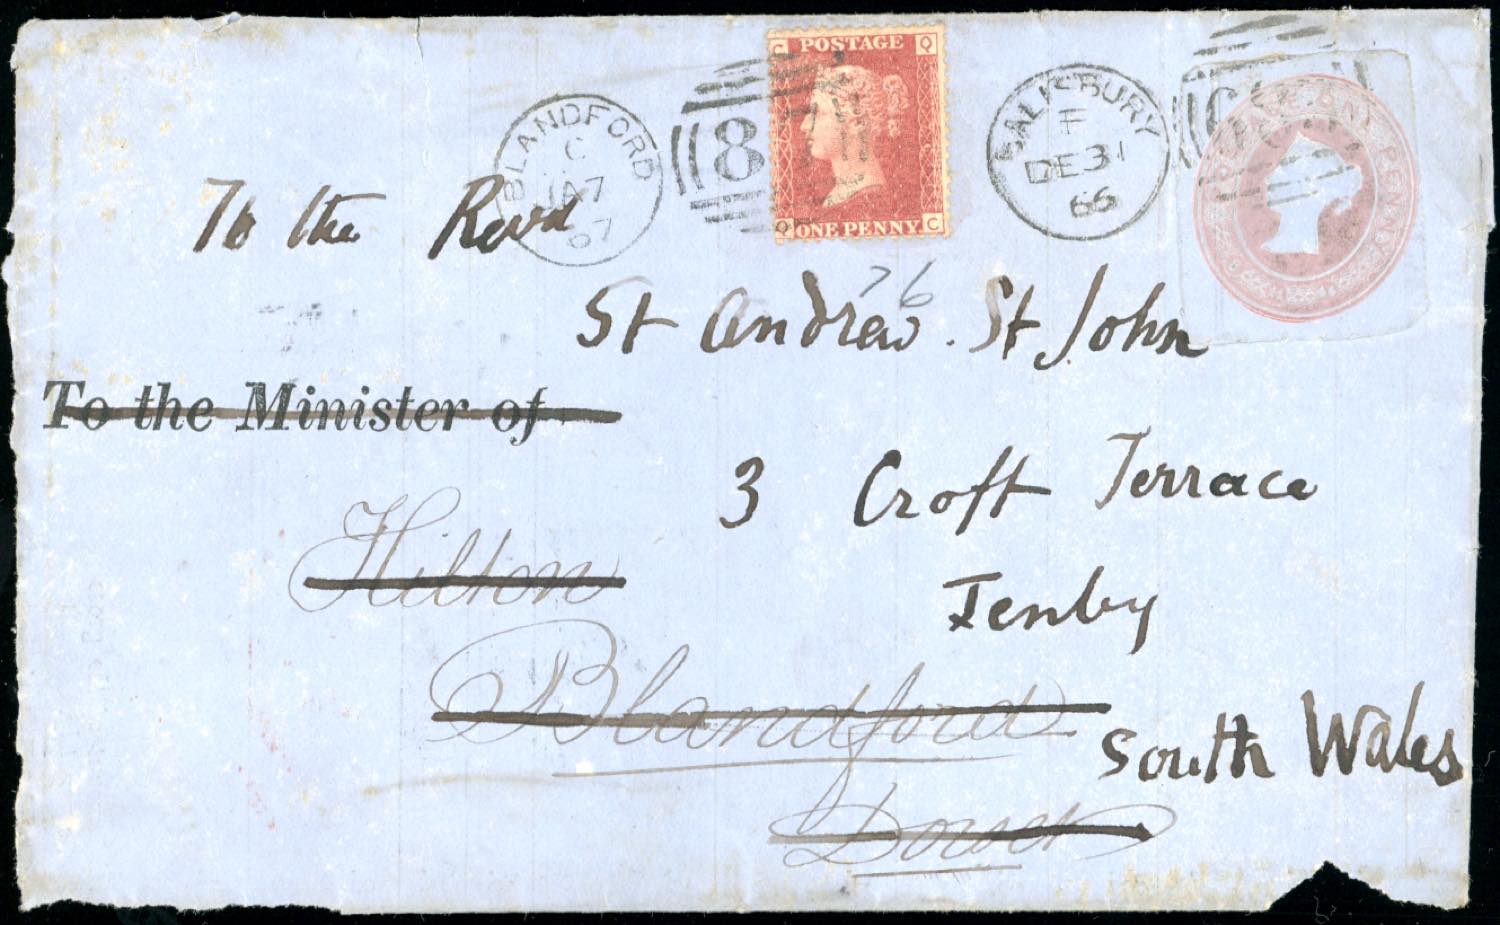 C POSTAGE Q
Q ONE PENNY C
BLANDFORD
C
JA 7
67
8
SALISBURY
F
DE 31
66
PENNY
To the Revd
76
St Andrew. St John
To the Minister of
3 Croft Terrace
Hilton
Tenby
Blandford
South Wales
Dorset